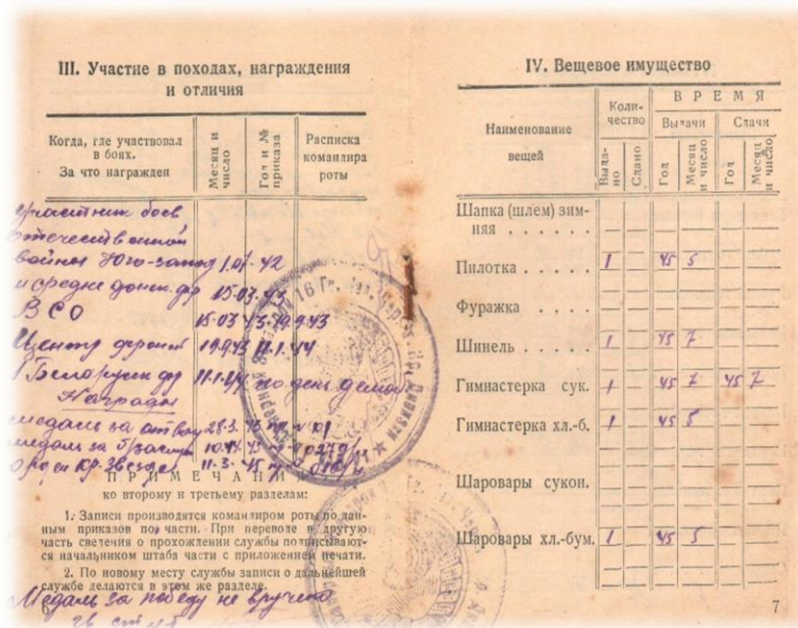 III. Участие в походах, награждения
и отличия
Когда, где участвовал
в боях.
За что награжден
Месяц и
число
Год и №
приказа
Расписка
командира
роты
Участник боев
отечественной
войны Юго-запад 1.07.42
и средне донск. фр 15.03.43
ВСО 15.03.43-19.9.43
Центр фронт 19.9.43 11.1.44
1 Белорусск фр 11.1.44 по день демоб
Награды
медаль за отвагу 28.3.43 пр №01
медаль за
орден Кр. Звезда 11.3.45
ПРИМЕЧАНИЯ
ко второму и третьему разделам:
1. Записи производятся командиром роты по дан-
ным приказов по части. При переводе в другую
часть сведения о прохождении службы подписывают-
ся начальником штаба части с приложением печати.
2. По новому месту службы записи о дальнейшей
службе делаются в этом же разделе.
Медаль за победу не вручена
6
IV. Вещевое имущество
Наименование
вещей
Коли-
чество
ВРЕМЯ
Выдачи
Сдачи
Выда-
но
Сдано
Год
Месяц
и число
Год
Месяц
и число
Шапка (шлем) зим-
няя . . . . . . — — — — — —
Пилотка . . . . . 1 — 45 5 — —
Фуражка — — — — — —
Шинель . . . . . 1 — 45 7 — —
Гимнастерка сук. 1 — 45 7 45 7
Гимнастерка хл.-б. 1 — 45 5 — —
Шаровары сукон. — — — — — —
Шаровары хл.-бум. 1 — 45 5 — —
7